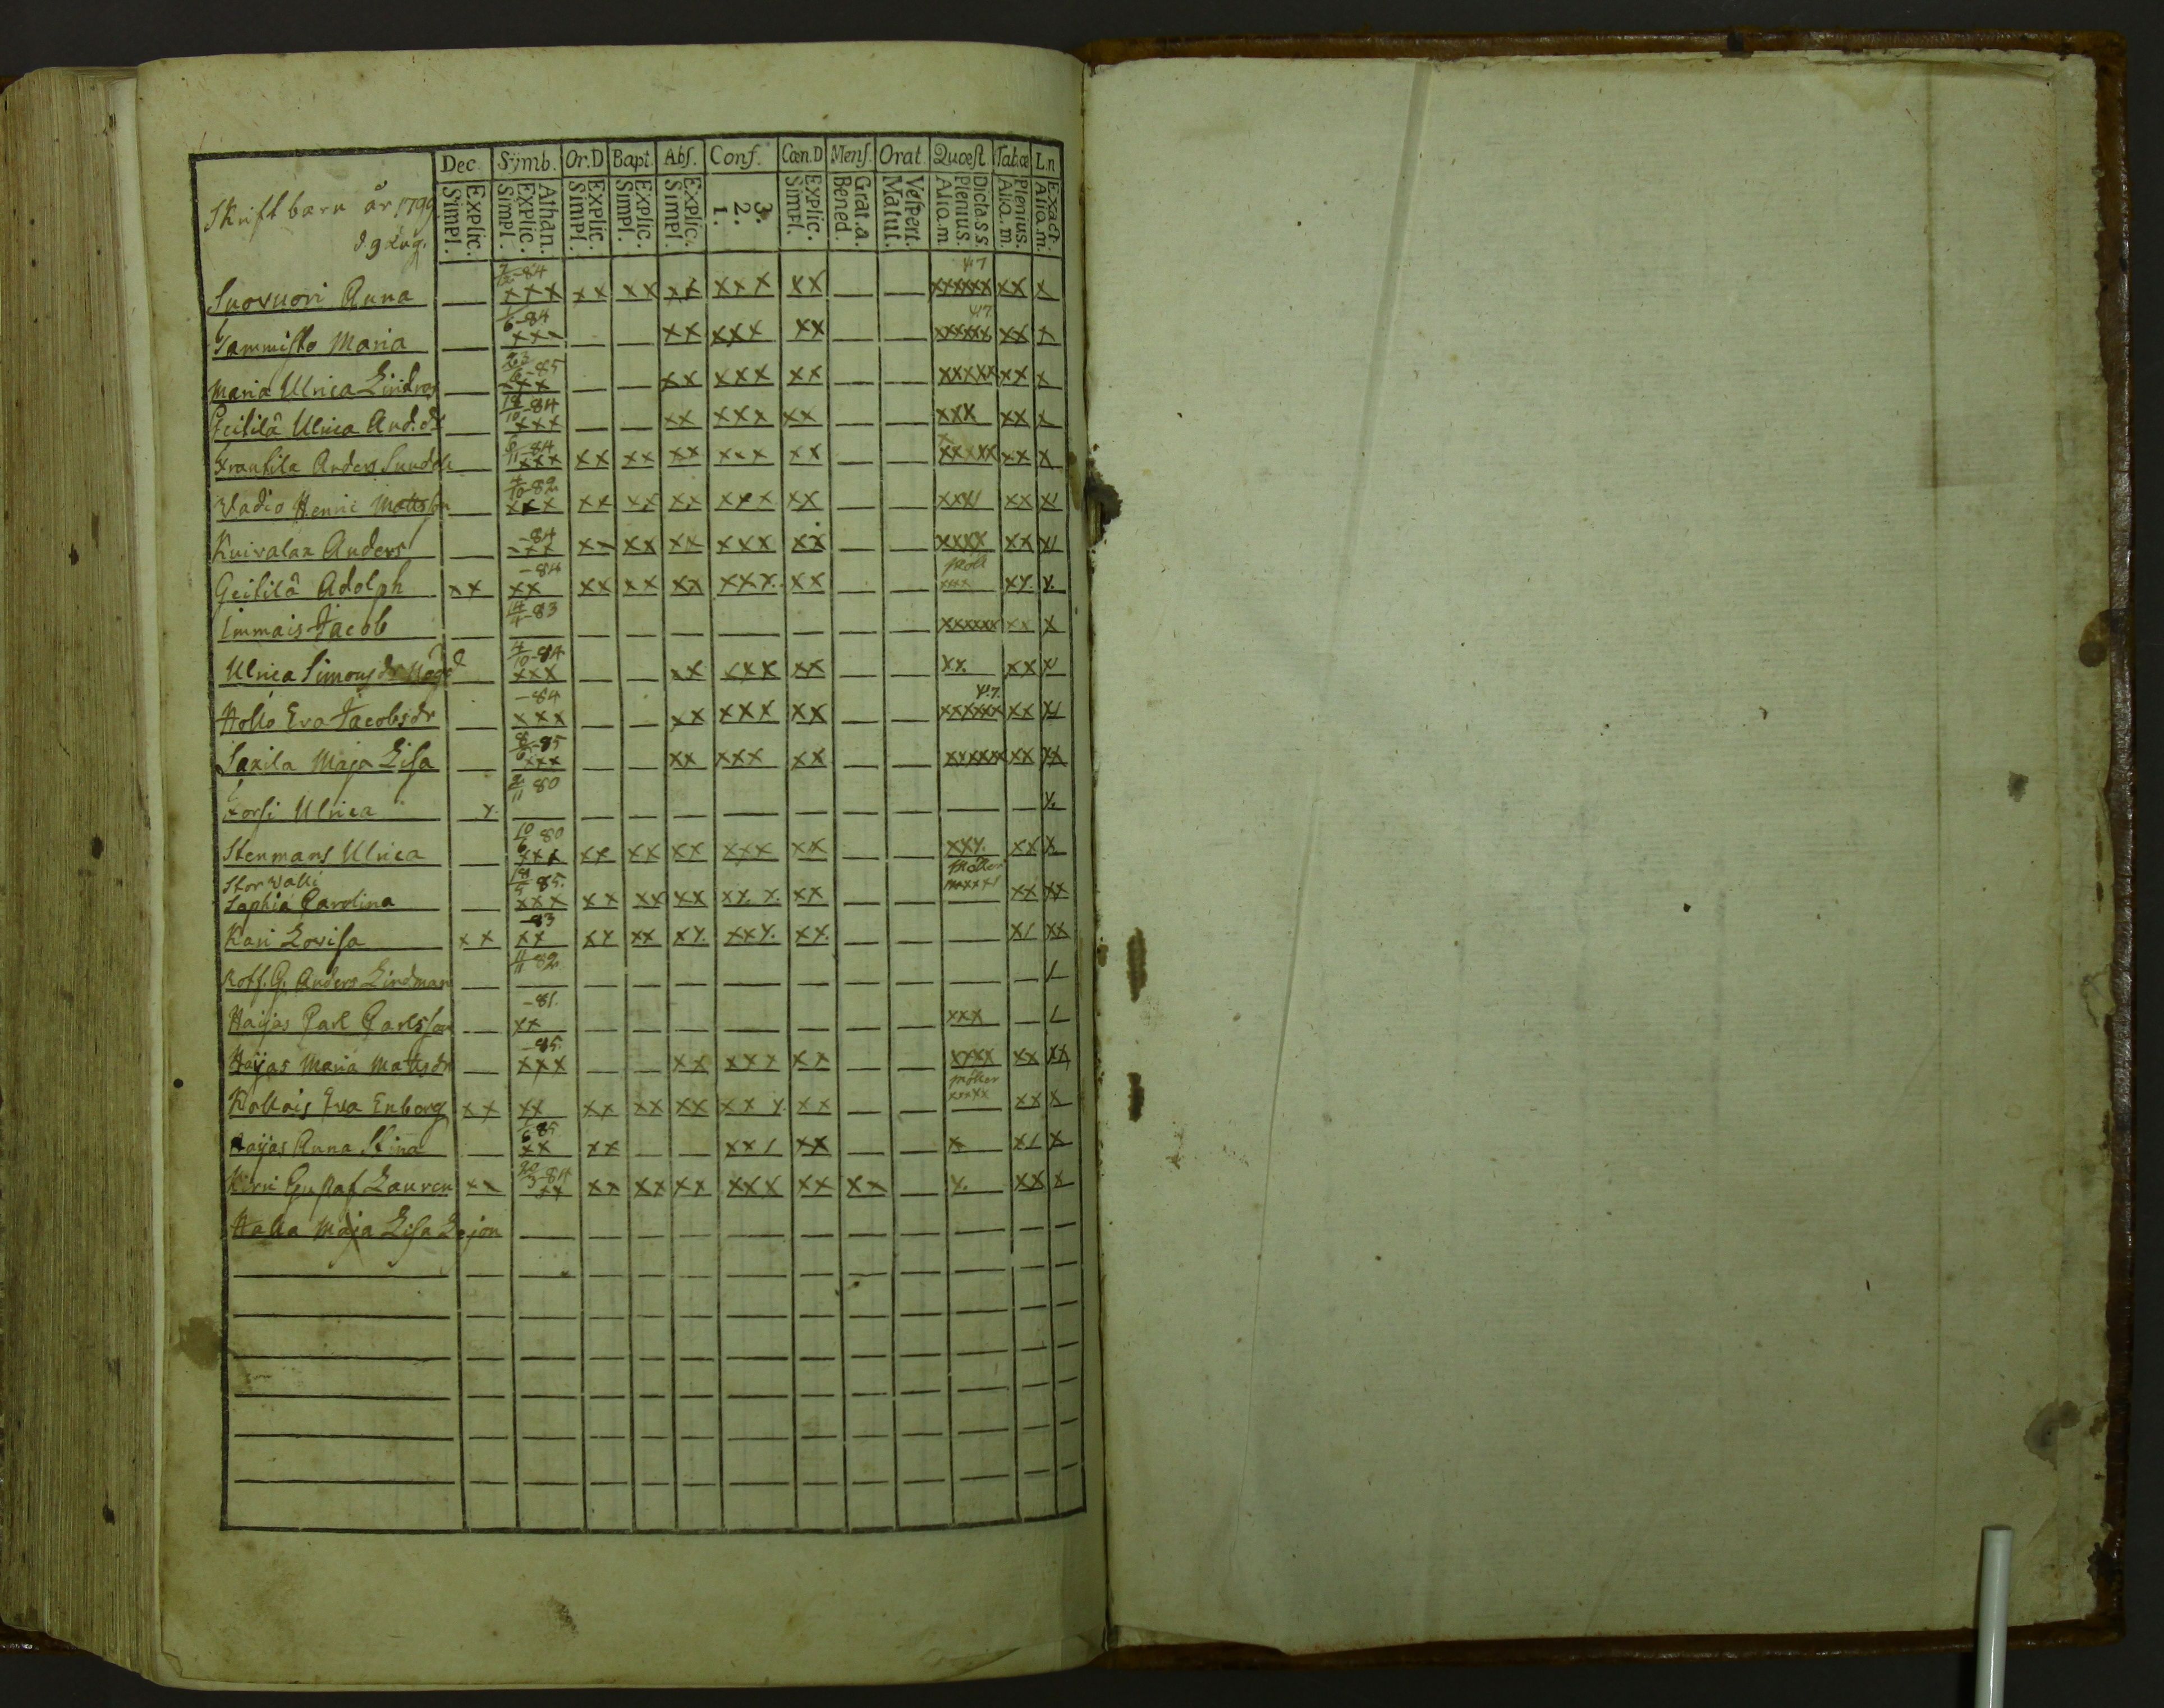 Dec. Symb. Or.D Bapt. Abs. Conf. Cœn.D Mens. Orat. Quœst Tab.œ L.n
Skrift barn år 1799
d. 9 Aug.
Simpl. Explic. Simpl. Explic. Athan. Simpl. Explic. Simpl. Explic. Simpl. Explic. 1. 2. 3. Simpl. Explic. Bened. Grat.a. Matut. Vespert. Alia.m. Plenius. Dicta.s.s. Alia.m. Plenius. Alia.m. Exact.
Suovuori Anna — -84 xxx xx xx xx xxx xx — — xxxxxx xx x
Tammisto Maria — 6-84 xxx — — xx xxx xx — — xxxxxx xx x
Maria Ulrica Lindros — 23/6-85 xxx — — xx xxx xx — — xxxxx xx x
Geitilä Ulrica And.dr — 18/10-84 xxx — — xx xxx xx — — xxx xx x
Frantila Anders — 6/11-84 xxx xx xx xx xxx xx — — xxxxx xx x
Wadio Henric Mattsson — 4/10-82 xxx xx xx xx xxx xx — — xxx xx x
Kuivalax Anders — -84 xxx xx xx xx xxx xx — — xxxx xx x
Geitilä Adolph xx -84 xx xx xx xx xxx xx — — xxxx xx x.
Immais Jacob — 14/1-83 — — — — — — — — xxxxxx xx x
Ulrica Simonsdr — 4/10-84 xxx — — xx xxx xx — — xx. xx x
Hollo Eva Jacobsdr — -84 xxx — — xx xxx xx — — xxxxxx xx x
Saxila Maja Lisa — 8/6-85 xxx — — xx xxx xx — — xxxxxx xx xx
Forsi Ulrica x. 2/11 80 — — — — — — — — — — x.
Stenmans Ulrica — 10/6 80 xxx xx xx xx xxx xx — — xxx. xx x.
Storwalli
Sophia Carolina — 18/5 85. xxx xx xx xx xxx xx — — xx xx
Kari Lovisa xx -83 xx xx xx xx. xxx. xx. — — — x/ xx
Kott.G. Anders Lindman — 11/11 82 — — — — — — — — — — /
Haijas Carl Carlsson — -81. xx — — — — — — — xxx — /
Haijas Maria Mattsdr — -85. xxx — — xx xxx xx — — xxxx xx xx
Kallais Eva Enborg xx xx xx xx xx xxx xx — — xxxxx xx x
Haijas Anna Stina — 6 85 xx xx — — xx/ xx — — x x/ x
Kirri Gustaf Lauren xx 20/3-84 xx xx xx xx xxx xx xx — x. xx x
Halla Maja Lisa Lejon